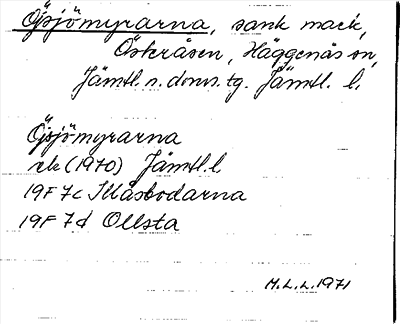 Öjsjömyrarna, sank mark,
Österåsen, Häggenås sn,
Jämtl. n. doms. tg. Jämtl. l.
Öjsjömyrarna
rek (1970) Jämtl. l
19F 7c Illåsbodarna
19F 7d Ollsta
M.L.L. 1971